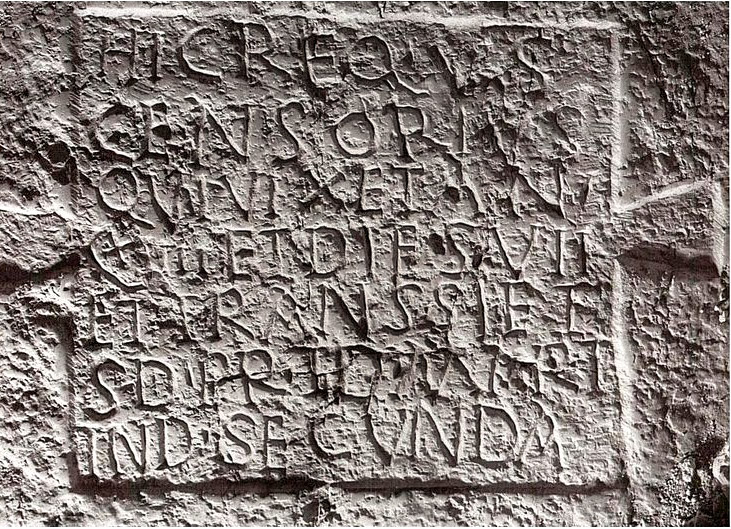 HIC REQVS
CENSORIVS
QVI VIXET ANN
III ET DIES VII
ET TRANSSIET
S D PRID
IND SECVNDA